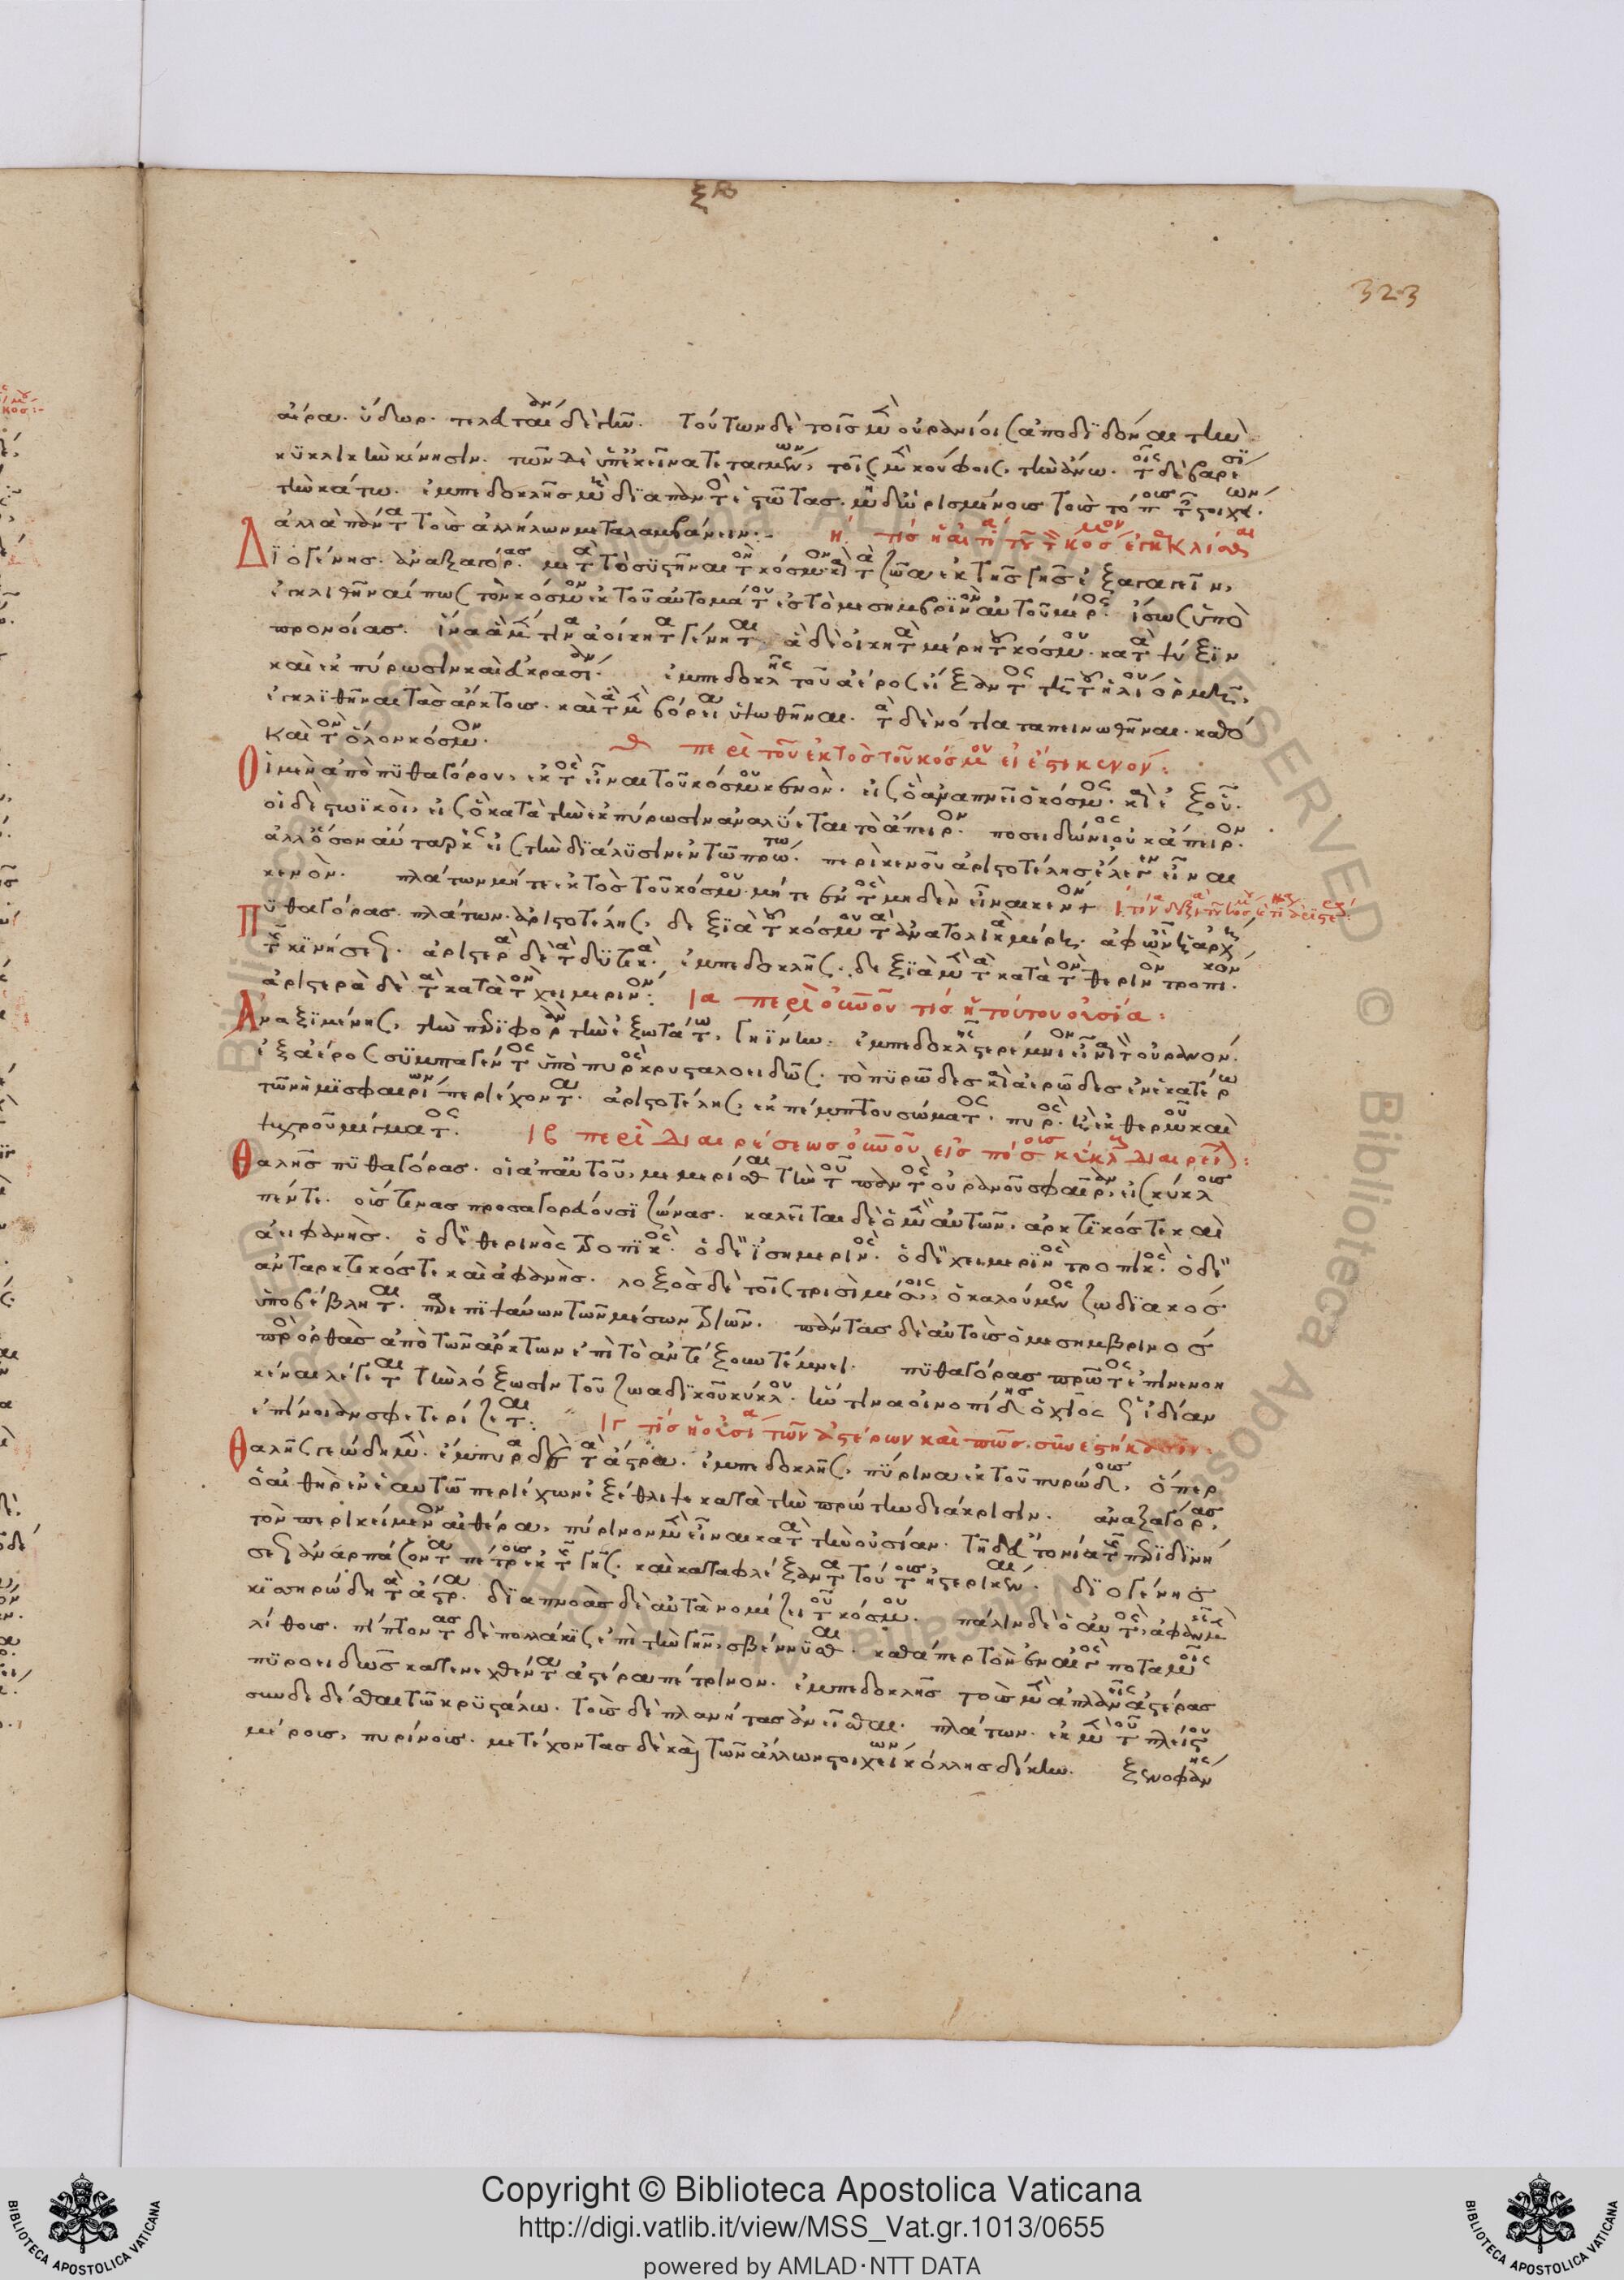 ξβ
323
ἀέρα. ὕδωρ. τελευταίαν δὲ γῆν. τούτων δὲ τοῖς μὲν οὐρανίοις ἀποδιδόναι τὴν
κυκλικὴν κίνησιν. τῶν δὲ ὑπ' ἐκεῖνα τεταγμένων, τοῖς μὲν κούφοις, τὴν ἄνω. τοῖς δὲ βαρέσι
τὴν κάτω. ἐμπεδοκλῆς μὴ διὰ παντὸς ἑστῶτας. μὴ δ' ὡρισμένοις τοὺς τόπους τῶν στοιχείων.
ἀλλὰ πάντα τοὺς ἀλλήλων μεταλαμβάνειν:-
η. τίς ἡ αἰτία τοῦ τὸν κόσμον ἐγκεκλίσθαι
Διογένης. ἀναξαγόρας. μετὰ τὸ συστῆναι τὸν κόσμον καὶ τὰ ζῶα ἐκ τῆς γῆς ἐξαγαγεῖν,
ἐγκλιθῆναί πως τὸν κόσμον ἐκ τοῦ αὐτομάτου εἰς τὸ μεσημβρινὸν αὐτοῦ μέρος. ἴσως ὑπὸ
προνοίας. ἵνα ἃ μέν τινα ἀοίκητα γένηται. ἃ δὲ οἰκητὰ μέρη τοῦ κόσμου. κατὰ ψύξιν
καὶ ἐκπύρωσιν καὶ εὐκρασίαν. ἐμπεδοκλῆς τοῦ ἀέρος εἴξαντος τῇ τοῦ ἡλίου ὁρμῇ,
ἐγκλιθῆναι τὰς ἄρκτους. καὶ τὰ μὲν βόρεια ὑψωθῆναι. τὰ δὲ νότια ταπεινωθῆναι. καθὸ
καὶ τὸν ὅλον κόσμον.
θ περὶ τοῦ ἐκτὸς τοῦ κόσμου εἰ ἔστι κενόν:
Οἱ μὲν ἀπὸ πυθαγόρου, ἐκτὸς εἶναι τοῦ κόσμου κενὸν. εἰς ὃ ἀναπνεῖ ὁ κόσμος. καὶ ἐξ οὗ.
οἱ δὲ στωϊκοὶ, εἰς ὃ κατὰ τὴν ἐκπύρωσιν ἀναλύεται τὸ ἄπειρον. ποσειδώνιος οὐκ ἄπειρον.
ἀλλ' ὅσον αὔταρκες εἰς τὴν διάλυσιν ἐν τῶ πρώτω. περὶ κενοῦ ἀριστοτέλης ἔλεγεν εἶναι
κενὸν. πλάτων μήτε ἐκτὸς τοῦ κόσμου. μήτε ἐντὸς μηδὲν εἶναι κενόν
Πυθαγόρας. πλάτων. ἀριστοτέλης, δεξιὰ τοῦ κόσμου τὰ ἀνατολικὰ μέρη. ἀφ' ὧν ἡ ἀρχὴ
τῆς κινήσεως. ἀριστερὰ δὲ τὰ δυτικά. ἐμπεδοκλῆς. δεξιὰ μὲν τὰ κατὰ τὸν θερινὸν τροπικόν.
ἀριστερὰ δὲ τὰ κατὰ τὸν χειμερινόν:
ια περὶ οὐρανοῦ τίς ἡ τούτου οὐσία:
Ἀναξιμένης, τὴν περιφορὰν τὴν ἐξωτάτω, γηίνην. ἐμπεδοκλῆς στερέμνιον εἶναι τὸν οὐρανόν.
ἐξ ἀέρος συμπαγέντος ὑπὸ πυρὸς κρυσταλοειδῶς. τὸ πυρῶδες καὶ ἀερῶδες ἐν ἑκατέρω
τῶν ἡμισφαιρίων περιέχοντα. ἀριστοτέλης, ἐκ πέμπτου σώματος. πυρὸς. ἢ ἐκ θερμοῦ καὶ
ψυχροῦ μίγματος.
ιβ περὶ διαιρέσεως οὐρανοῦ εἰς πόσους κύκλους διαιρεῖται:
Θαλῆς πυθαγόρας. οἱ ἀπ' αὐτοῦ, μεμερίσθαι τὴν τοῦ παντὸς οὐρανοῦ σφαῖραν, εἰς κύκλους
πέντε. οὕστινας προσαγορεύουσι ζώνας. καλεῖται δὲ ὁ μὲν αὐτῶν. ἀρκτικός τε καὶ
ἀειφανὴς. ὁ δὲ θερινὸς τροπικὸς. ὁ δὲ ἰσημερινὸς. ὁ δὲ χειμερινὸς τροπικὸς. ὁ δὲ
ἀνταρκτικός τε καὶ ἀφανὴς. λοξὸς δὲ τοῖς τρισὶ μέσοις, ὁ καλούμενος ζωδιακὸς
ὑποβέβληται. παρεπιψαύων τῶν μέσων τριῶν. πάντας δὲ αὐτοὺς ὁ μεσημβρινὸς
πρὸς ὀρθὰς ἀπὸ τῶν ἄρκτων ἐπὶ τὸ ἀντίξουν τέμνει. πυθαγόρας πρῶτος ἐπινενοη
κέναι λέγεται τὴν λόξωσιν τοῦ ζωαδικοῦ κύκλου. ἥν τινα οἰνοπίδης ὁ χῖος ὡς ἰδίαν
ἐπίνοιαν σφετερίζεται:
ιγ τίς ἡ οὐσία τῶν ἀστέρων καὶ πῶς συνέστηκεν:
Θαλῆς γεώδη μὲν. ἔμπυρα δὲ τὰ ἄστρα. ἐμπεδοκλῆς, πύρινα ἐκ τοῦ πυρώδους, ὅπερ
ὁ αἰθὴρ ἐν ἑαυτῶ περιέχων ἐξέθλιψε κατὰ τὴν πρώτην διάκρισιν. ἀναξαγόρας,
τὸν περικείμενον αἰθέρα, πύρινον μὲν εἶναι κατὰ τὴν οὐσίαν. τῇ δ' εὐτονία τῆς περιδινή
σεως ἀναρπάζοντα πέτρους ἐκ τῆς γῆς. καὶ καταφλέξαντα τούτους ἠστερικέναι. διογένης
κισηρώδη τὰ ἄστρα. διαπνοὰς δὲ αὐτὰ νομίζει τοῦ κόσμου. πάλιν δὲ ὁ αὐτὸς, ἀφανεῖς μὲν
λίθους. πίπτοντας δὲ πολλάκις ἐπὶ τὴν γῆν, σβέννυσθαι. καθάπερ τὸν ἐν αἰγὸς ποταμοῖς
πυροειδῶς κατενεχθέντα ἀστέρα πέτρινον. ἐμπεδοκλῆς τοὺς μὲν ἀπλανεῖς ἀστέρας
συνδεδέσθαι τῶ κρυστάλω. τοὺς δὲ πλανήτας ἀνεῖσθαι. πλάτων. ἐκ μὲν τοῦ πλείστου
μέρους, πυρίνους. μετέχοντας δὲ καὶ τῶν ἄλλων στοιχείων κόλλης δίκην. ξενοφάνης
Copyright © Biblioteca Apostolica Vaticana
http://digi.vatlib.it/view/MSS_Vat.gr.1013/0655
powered by AMLAD·NTT DATA
BIBLIOTECA APOSTOLICA VATICANA
BIBLIOTECA APOSTOLICA VATICANA